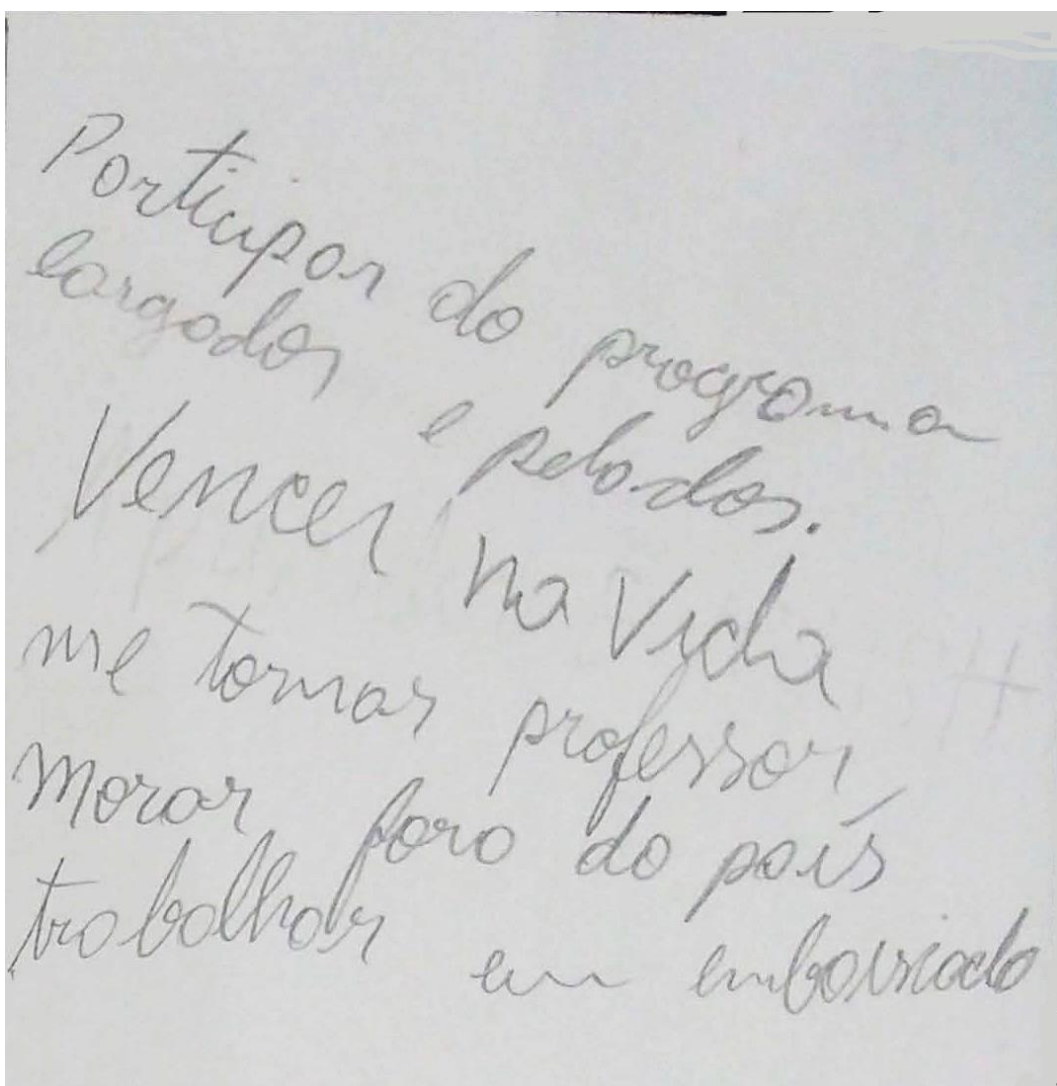 Participar do programa
largados e pelados.
Vencer na Vida
me tornar professor,
morar fora do país
trabalhar em embaixada